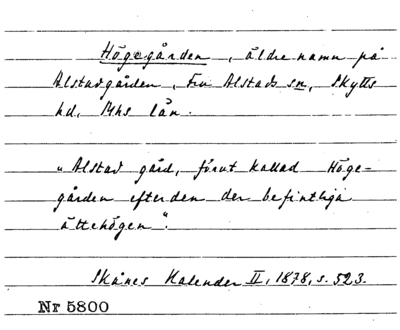 Högegården, äldre namn på
Alstadgården, Fru Alstads sn, Skytts
hd, Mhs län.
"Alstad gård, förut kallad Höge-
gården efter den der befintliga
ättehögen".
Skånes Kalender II, 1878, s. 523.
Nr 5800